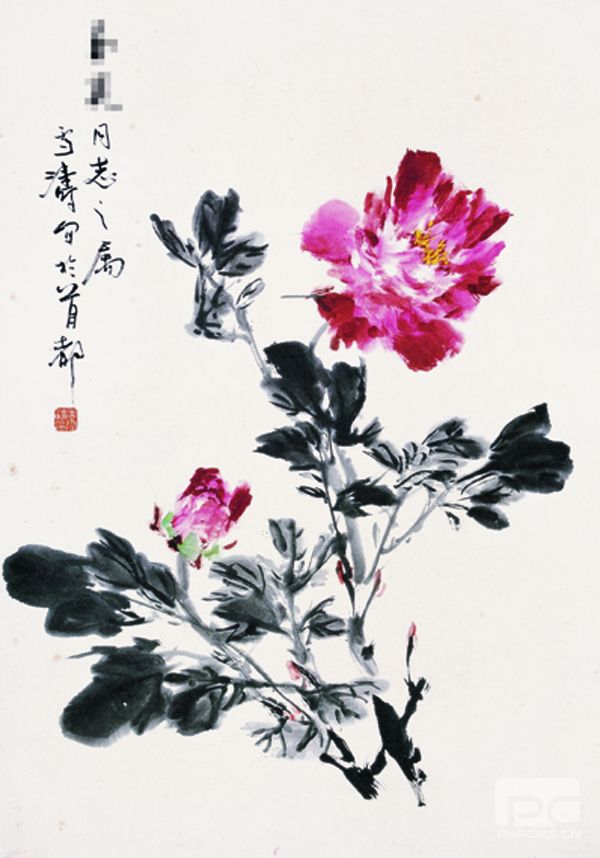 同志之属
雪濤写於首都
PC
PHPCMS.CN